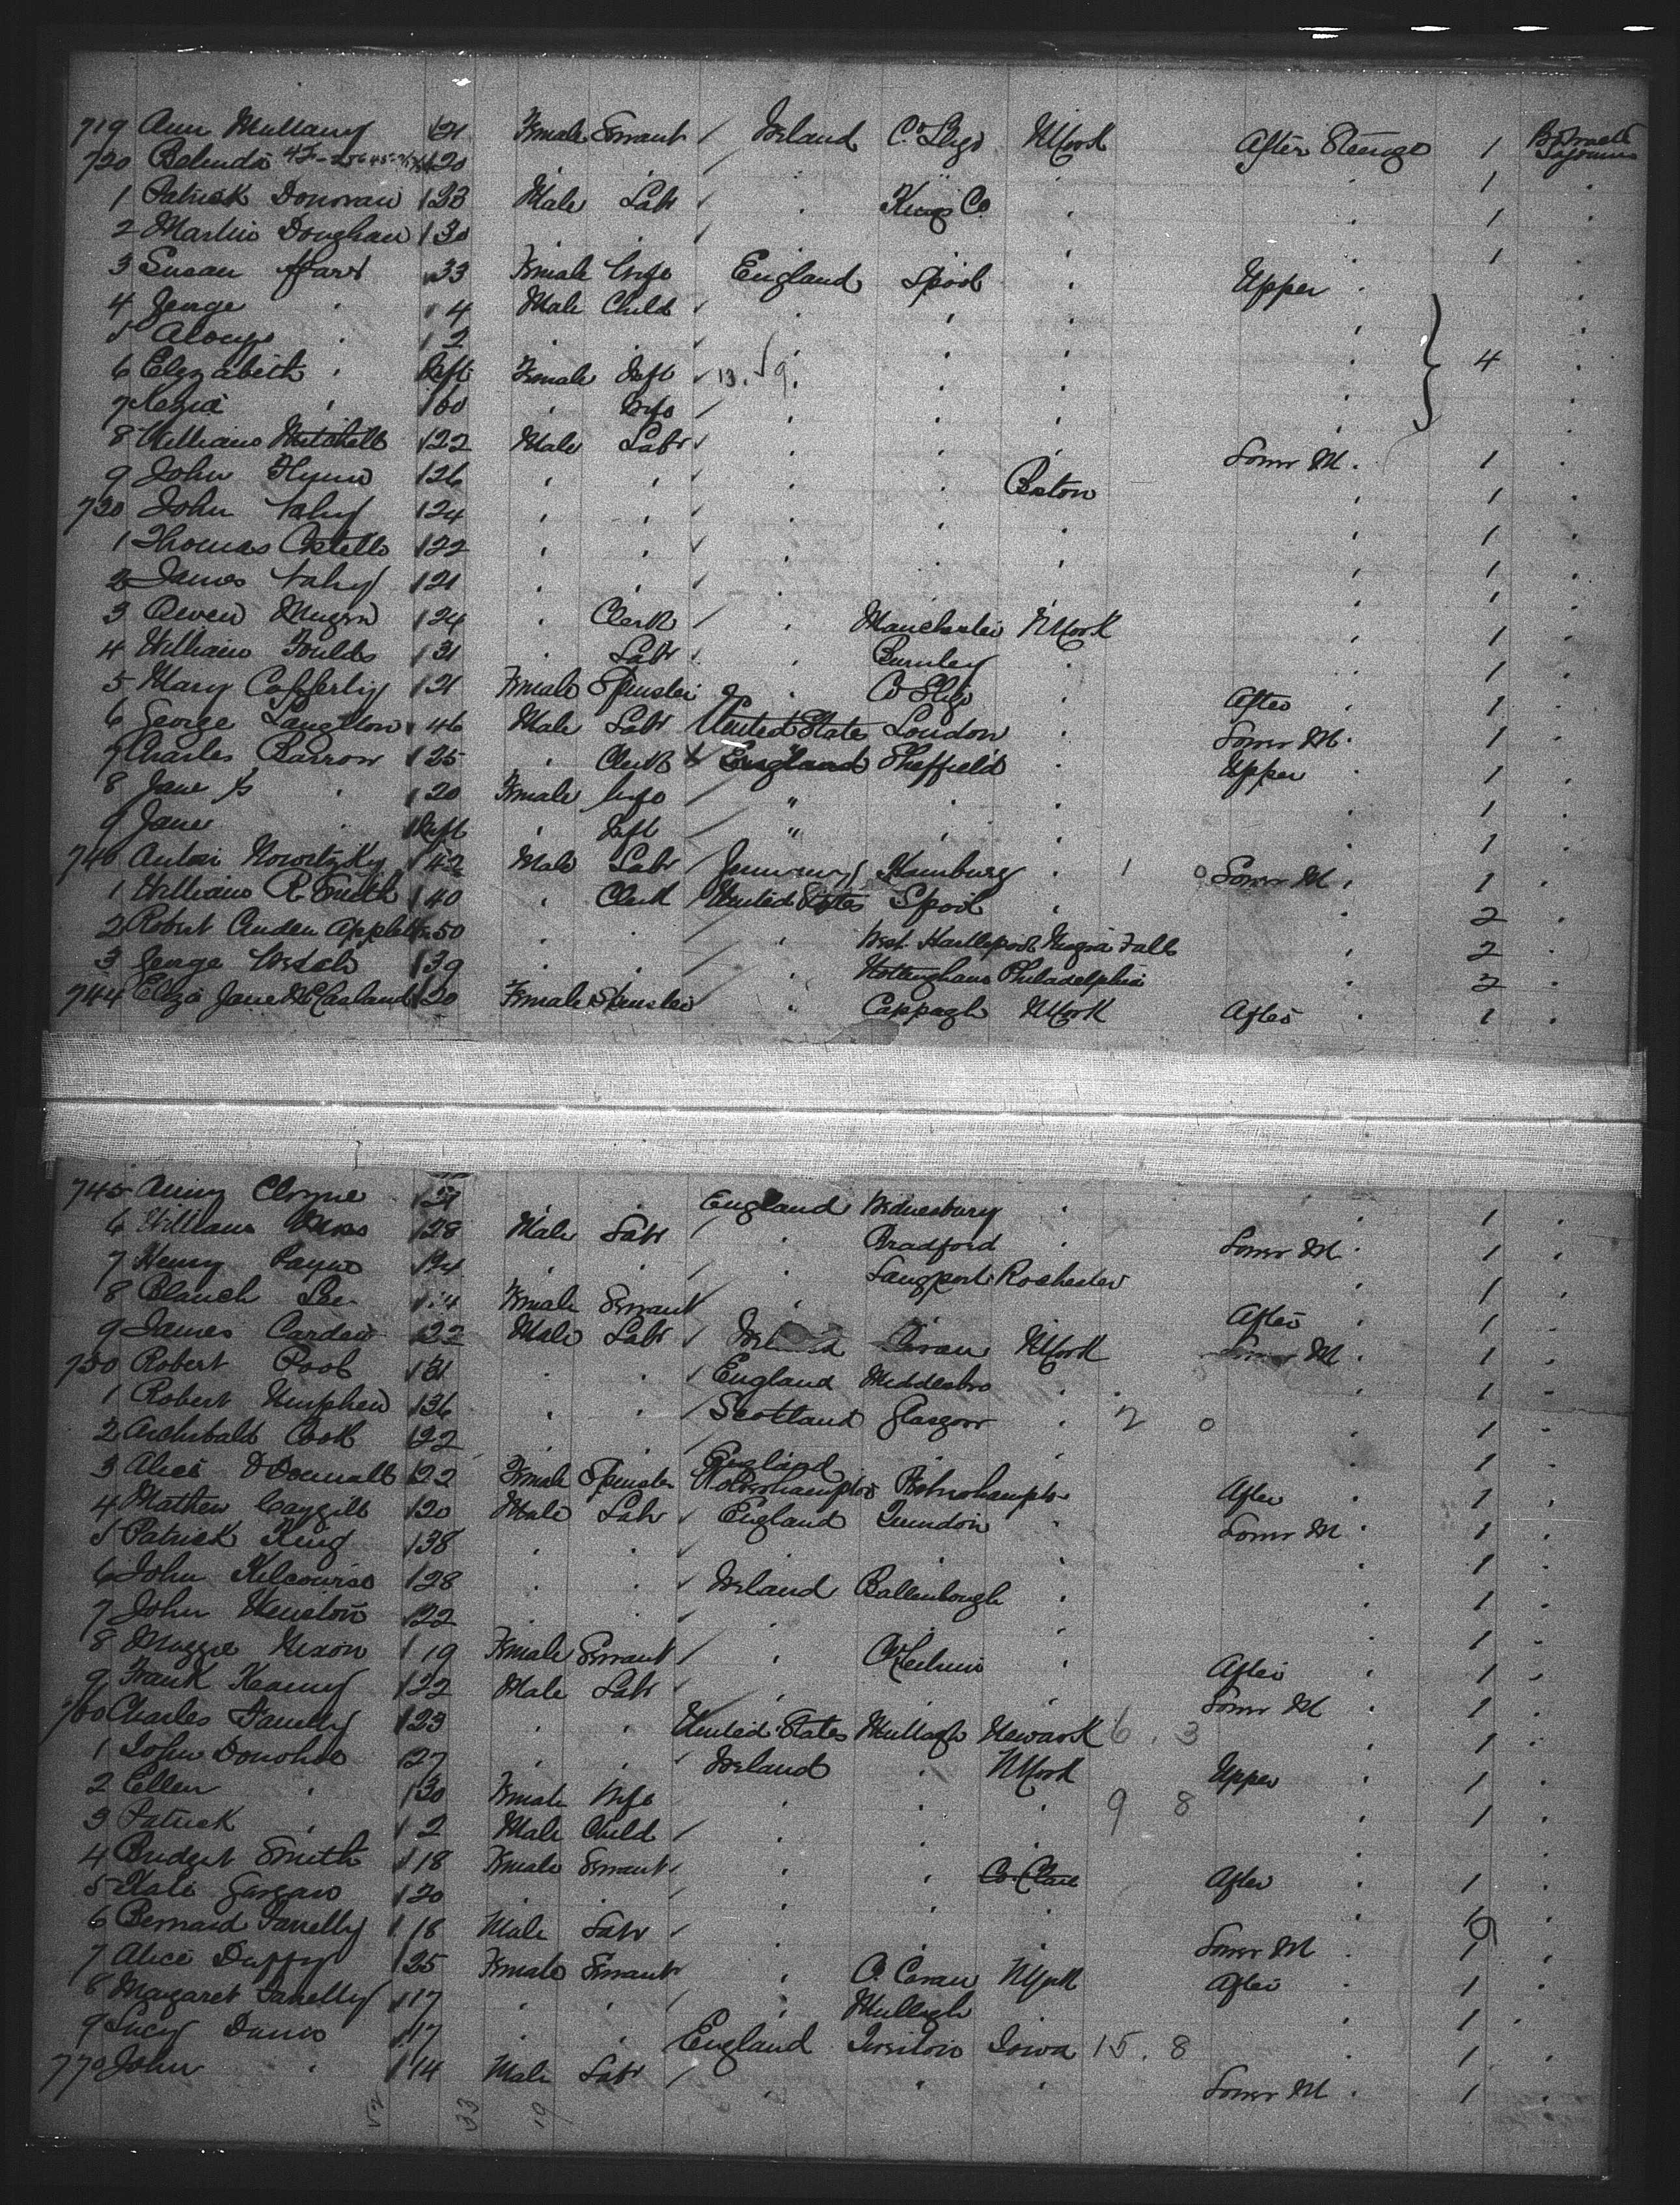 719 Ann Mullany 21 Female Servant / Ireland Co. Sligo NYork After Steerage 1
720 Belinda " 20 " " " " " " 1 "
1 Patrick Donovan 23 Male Labr " Kings Co " " 1 "
2 Martin Doughan 30 " " / " " " " 1
3 Susan Hart 33 Female Wife England Lpool " Upper " "
4 George " 4 Male Child " " " " "
5 Alonzo " 2 " " " " " " "
6 Elizabeth " Inft Female Inft 13. 9 " " " 4 "
7 " 60 " Wife / " " " " "
8 William Mitchell 22 Male Labr " " " Lower M. 1 "
9 John Flynn 26 " " " " Boston " 1 "
730 John Fahy 24 " " " " " " 1 "
1 Thomas Costello 22 " " " " " " 1 "
2 James Fahy 21 " " " " " " 1 "
3 Owen 24 " Clerk / " Manchester NYork " 1 "
4 William Foulds 31 " Labr " Burnley " " 1 "
5 Mary Cafferty 21 Female Spinster " Co Sligo " After " 1 "
6 George Langton 46 Male Labr United States London " Lower M. 1 "
7 Charles Barrow 25 " Clerk England Sheffield " Upper " 1 "
8 Jane " 20 Female Wife / " " " " 1 "
9 Jane " Inft " Inft / " " " " 1 "
740 Anton Nowitzky 42 Male Labr / Germany Hamburg " 1 0 Lower M. 1 "
1 William R. Smith 40 " Clerk / United States Lpool " " 2 "
2 Robert Appleton 50 " " / " West Hartlepool Niagra Falls " 2 "
3 George Welch 39 " " / " Nottingham Philadelphia " 2 "
744 Eliza Jane McCasland 20 Female Spinster / " Cappagh NYork After " 1 "
745 Anny Clyne 21 " " England Wednesbury " " 1 "
6 William 28 Male Labr / " Bradford " Lower M. 1 "
7 Henry Payne 24 " " / " Langport Rochester " 1 "
8 Blanch Lee 14 Female Servant / " After " 1 "
9 James 22 Male Labr Ireland Cavan NYork Lower M. 1 "
750 Robert Pool 31 " " / England Middlesbro " " 1 "
1 Robert 36 " " / Scotland Glasgow " 2 0 " 1 "
2 Archibald Cook 22 " " / " " " " 1 "
3 Alice O'Donnall 22 Female Spinster England Wolverhampton Wolverhampton After " 1 "
4 Mathew Caygill 20 Male Labr England " Lower M " 1 "
5 Patrick King 38 " " " " " " 1 "
6 John 28 " " Ireland " " 1 "
7 John 22 " " " " " " 1 "
8 Maggie Nixon 19 Female Servant / " " After " 1 "
9 Frank Kearny 22 Male Labr / " " " Lower M " 1 "
760 Charles Farrelly 23 " " United States Mullagh Newark 6 . 3 " 1 "
1 John Donohoe 27 " " Ireland " NYork Upper " 1 "
2 Ellen " 30 Female Wife " " " 9 8 " 1 "
3 Patrick " 2 Male Child / " " " "
4 Bridget Smith 18 Female Servant " " Co. Clare After " 1 "
5 Kate 20 " " / " " " " 1 "
6 Bernard Farrelly 18 Male Labr / " " " Lower M " 1 "
7 Alice Duffy 25 Female Servant " C. Cavan NYork After " 1 "
8 Margaret Farrelly 17 " " / " Mullagh " " 1 "
9 Lucy 17 " " England Iowa 15. 8 " 1 "
770 John " 14 Male Labr / " " " Lower M " 1 "
33 19